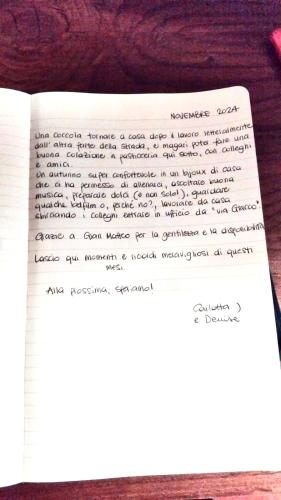 NOVEMBRE 2024
Una coccola tornare a casa dopo il lavoro letteralmente
dall'altra parte della strada, e magari poter fare una
buona colazione in pasticceria qui sotto, con colleghi
e amici.
Un autunno super confortevole in un bijoux di casa
che ci ha permesso di allenarci, ascoltare buona
musica, preparare dolci (e non solo!), guardare
qualche bel film o, perché no?, lavorare da casa
sbirciando i colleghi entrare in ufficio da "via Gracco".
Grazie a Gian Matteo per la gentilezza e la disponibilità
Lascio qui momenti e ricordi meravigliosi di questi
mesi.
Alla prossima, speriamo!
Carlotta
e Denise